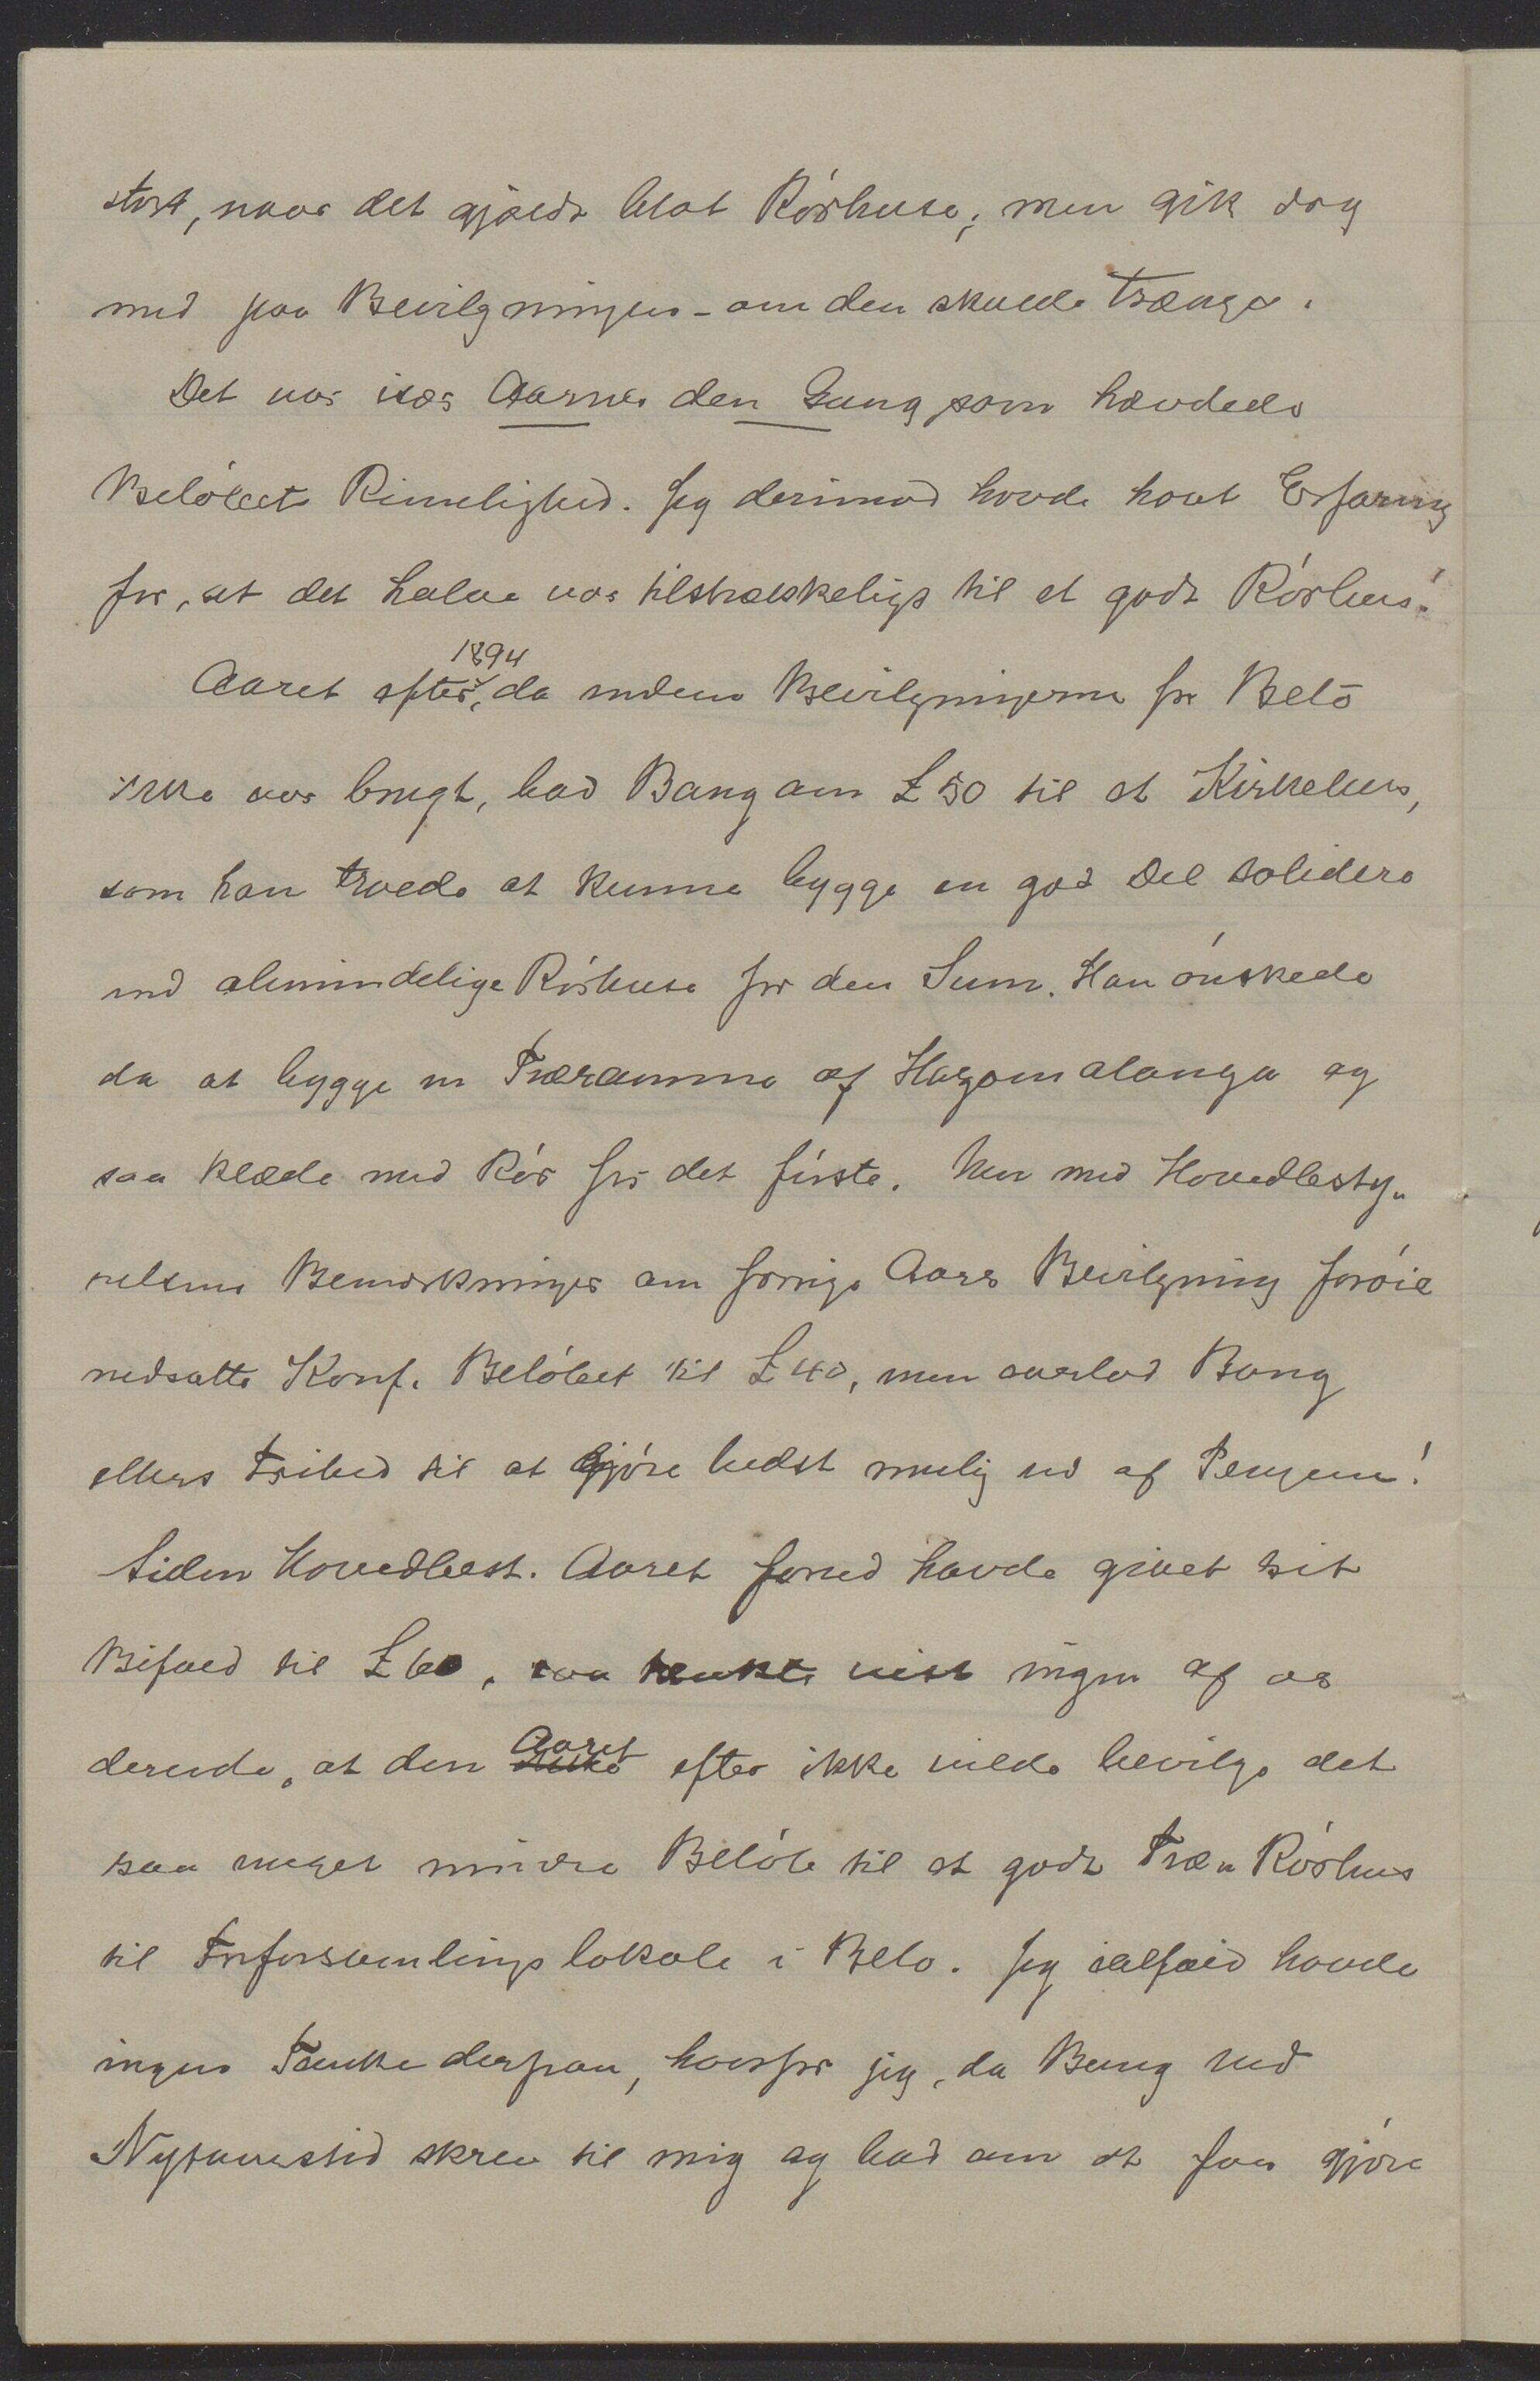 stort, naar det gjældt blot Rørhuse; men gik dog
med paa Bevilgningen - om den skulde trænges.
Det var især Aarnes den Gang som hævdede
Beløbets Rimelighed. Jeg derimod havde havt Erfaring
for, at det halve var tilstrækkeligt til et godt Rørhus!
Aaret efter, 1894 da endnu Bevilgningerne for Belo
ikke var brugt, bad Bang om £50 til et Kirkehus,
som han troede at kunne bygge en god Del solidere
end almindelige Rørhuse for den Sum. Han ønskede
da at bygge en Træramme af Hazomalanga og
saa klæde med Rør for det første. Men med Hovedbesty-
relsens Bemærkninger om forrige Aars Bevilgning forøie
nedsatte Konf. Beløbet til £40, men overlod Bang
ellers Frihed til at gjøre bedst mulig ud af Pengene!
Siden Hovedbest. Aaret forud havde givet sit
Bifald til £60, saa tænkte vist ingen af os
derude, at den Aaret efter ikke vilde bevilge det
saa meget mindre Beløb til et godt Træ- Rørhus
til Forsamlingslokale i Belo. Jeg ialfald havde
ingen Tanke derpaa, hvorfor jeg, da Bang ved
Nytaarstid skrev til mig og bad om at faa gjøre